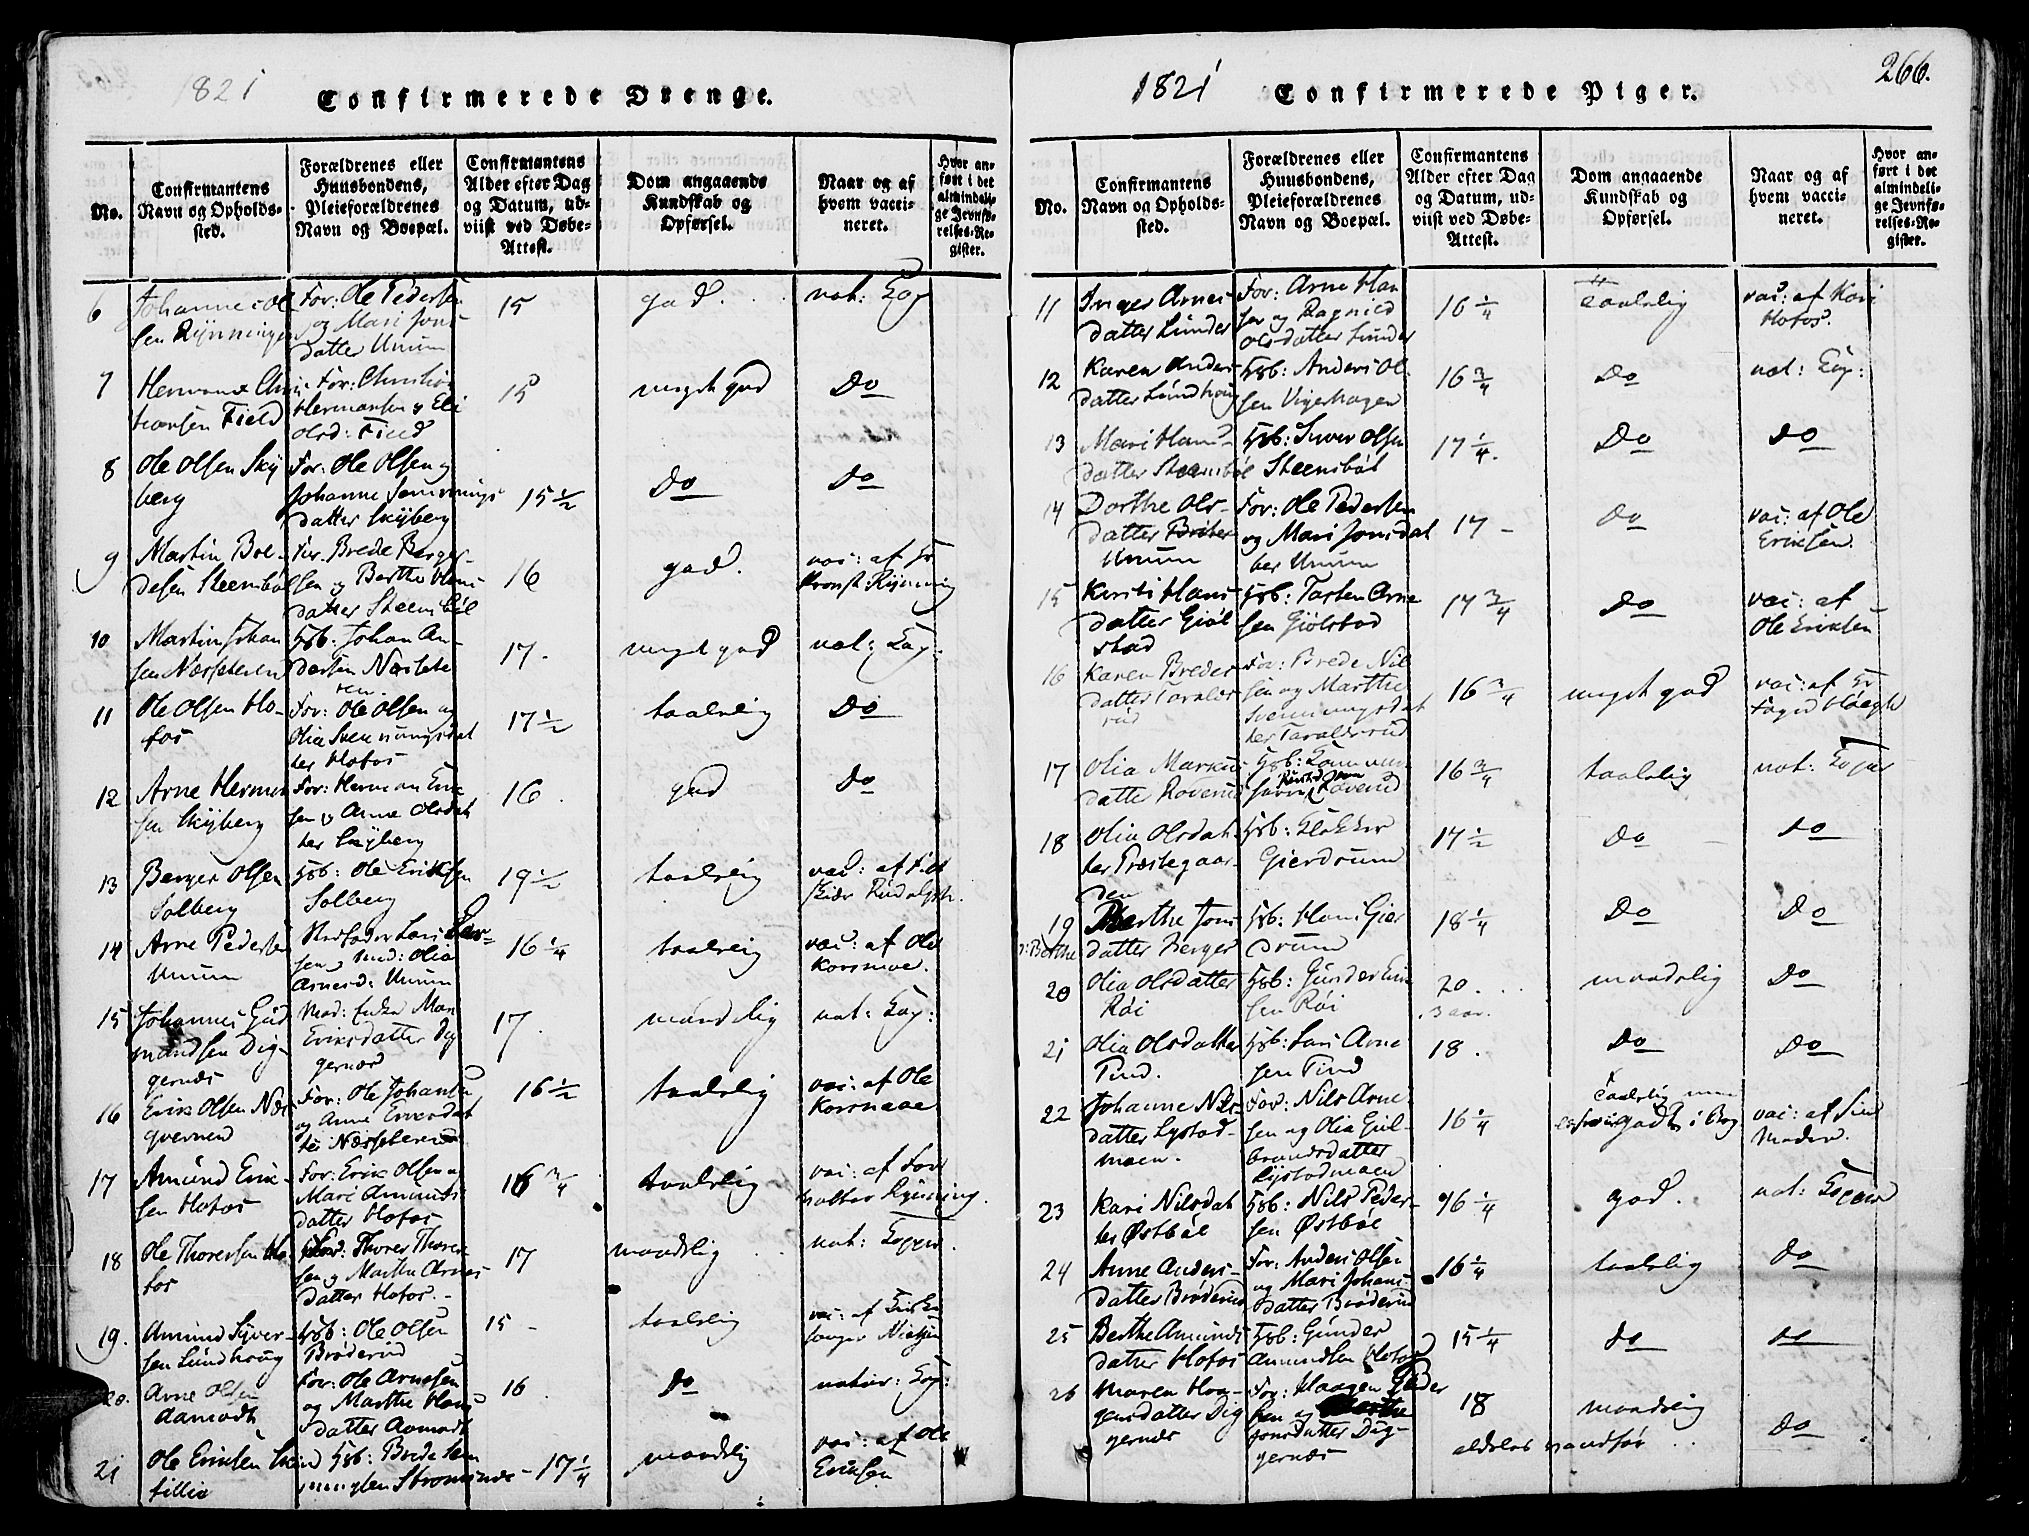 1821
Confirmerede Drenge.
No.
Confirmantens
Navn og Opholds-
sted.
Forældrenes eller
Huusbondens,
Pleieforældrenes
Navn og Boepæl.
Confirmantens
Alder efter Dag
og Datum, ud-
viist ved Døbe-
Attest.
Dom angaaende
Kundskab og
Opførsel.
Naar og af
hvem vacci-
neret.
Hvor an-
ført i det
almindeli-
ge Jevnfø-
relses-Re-
gister.
6
Johannes Ol
sen Rynningen
For: Ole Pedersen
og Mari Jons
datter Unum
15
god.
nat: Kop
7
Herman Chris
tiansen Field
For: Christian
Hermansen og Eli
Olsd: Field
15
meget god
Do
8
Ole Olsen Sky
berg
For: Ole Olsen og
Johanne Semmings
datter Skyberg
15 1/2
Do
Do
9
Martin Bre-
desen Steensbøl
For: Brede Berger
sen og Berthe Hans
datter Steensbøl
16
god.
vac: af Hr
Provst Rynning
10
Martin Johan
sen Næsseteren
Hsb: Johan An-
dersen Næssete
ren
17.
meget god
nat: Kop:
11
Ole Olsen Ho-
fos
For: Ole Olsen og
Olia Svenningsdat
ter Hofos
17 1/2
taalelig
Do
12
Arne Herman
sen Skyberg
For: Herman Erik
sen og Anne Olsdat
ter Skyberg
16.
god
Do
13
Berger Olsen
Solberg
Hsb: Ole Eriksen
Solberg
19 1/2
taalelig
14
Arne Pedersen
Unum
Stedfader Lars Lar-
sen og Mod: Olia
Arnesd: Unum
16 1/4
taalelig
vac: af Ole
Korsmoe.
15
Johannes Gud
mandsen Dig-
gernes
Mod: Enke Mari
Eriksdatter Dig
gernæs
17.
maadelig
nat: Kop:
16
Erik Olsen Næs
qvernen
For: Ole Johansen
16 1/2
taalelig
vac: af Ole
Korsmoe
17
Amund Erik-
sen Hofos
For: Erik Olsen og
Mari Amunds-
datter Hofos
16 3/4
taalelig
vac: af For
valter Rynning.
18
Ole Thoresen Ho-
fos
For: Thorer Thorer
sen og Marthe Arnes
datter Hofos.
17
maadelig
nat: Kopper.
19.
Amund Syver-
sen Lundhoug
Hsb: Ole Olsen
Brøderud
15 -
taalelig
vac: af Kirke
sanger Nielsen
20.
Arne Olsen
Aamodt
For: Ole Arnesen
og Marthe Hans
datter Aamodt
16
Do
natur: Kop:
21
Ole Eriksen
lillie
Hsb: Brede Sem
mingsen Strømsnæs
17 1/4
maadelig
vac: af Ole
Eriksen
1821
Confirmerede Piger.
266.
No.
Confirmantens
Navn og Opholds-
sted.
Forældrenes eller
Huusbondens,
Pleieforældrenes
Navn og Boepæl.
Confirmantens
Alder efter Dag
og Datum, ud-
viist ved Døbe-
Attest.
Dom angaaende
Kundskab og
Opførsel.
Naar og af
hvem vacci-
neret.
Hvor an-
ført i det
almindeli-
ge Jevnfø-
relses-Re-
gister.
11
Inger Arnes-
datter Lunder
For: Arne Han
sen og Ragnild
Olsdatter Lunder
16 1/4
taalelig
vac: af Kari
Hofos.
12
Karen Anders
datter Lundhoug
Hsb: Anders Ol-
sen Vigerhagen
16 3/4
Do
nat: Kop:
13
Mari Hans-
datter Steensbøl
Hsb: Siver Olsen
Steensbøl
17 1/4.
Do
Do
14
Dorthe Ols-
datter
Unum
For: Ole Pedersen
og Mari Jonsdat
ter Unum
17 -
Do
vac: af Ole
Eriksen.
15
Kirsti Hans
datter Giøl
stad
Hsb: Torsten Arne
sen Giølstad
17 3/4
Do
vac: af
Ole Eriksen
16
Karen Bredes
datter Taralds
rud
For: Brede Nil
sen og Marthe
Svenningsdat
ter Taraldsrud
16 3/4
meget god
vac: af Hr
Foged Höegh
17
Olia Markus-
datter Roverud
16 3/4
taalelig
nat: Kopper
18
Olia Olsdat-
ter Præstegaar-
den
Hsb: Klokker
Gierdrum
17 1/2
Do
Do
19
Berthe Jons
datter Berger
ɔ: Berthe
Hsb: Hans Gier
drum
18 1/4
Do
Do
20
Olia Olsdatter
Røi
Hsb: Gunder Erik
sen Røi
20.
maadelig
Do
21
Olia Olsdatter
Tind.
Hsb: Lars Arne
sen Tind
18.
Do
Do
22
Johanne Nils-
datter Lystad-
moen.
For: Nils Arne
sen og Olia Gul-
brandsdatter
Lystadmoen
16 1/4
taalelig men
godt i Bog
vac: af Sin
Moder.
23
Kari Nilsdat
ter Østbøl
Hsb: Nils Peder-
sen Østbøl
16 1/4
god.
nat: Kopper
24
Anne Anders-
datter Brøderud
For: Anders Olsen
og Mari Johans-
datter Brøderud
16 1/4
taalelig
Do
25
Berthe Amunds
datter Hofos
Hsb: Gunder
Amundsen Hofos
15 1/4
Do
Do
26
Maren Haa-
gensdatter Dig
gernæs
For: Haagen Peder
sen og Marthe
Jonsdatter Dig-
gernæs
18
maadelig
Do